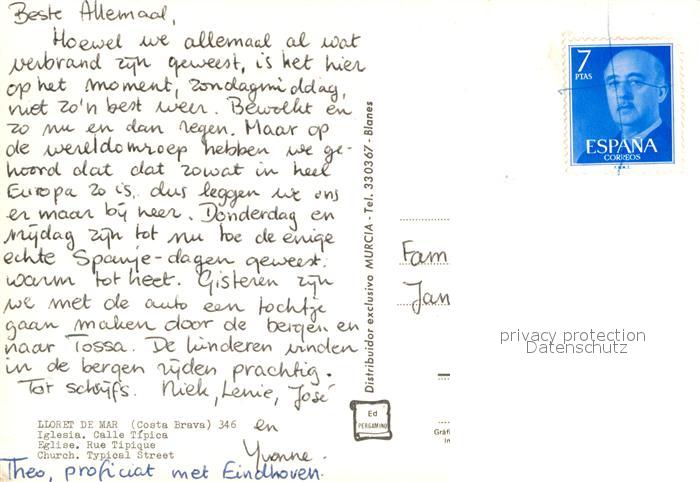 Beste Allemaal,
Hoewel we allemaal al wat
verbrand zijn geweest, is het hier
op het moment, zondagmiddag,
niet zo'n best weer. Bewolkt en
zo nu en dan regen. Maar op
de wereldomroep hebben we ge-
hoord dat dat zowat in heel
Europa zo is, dus leggen we ons
er maar bij neer. Donderdag en
vrijdag zijn tot nu toe de enige
echte Spanje-dagen geweest:
warm tot heet. Gisteren zijn
we met de auto een tochtje
gaan maken door de bergen en
naar Tossa. De kinderen vinden
in de bergen rijden prachtig.
Tot schrijfs. Niek, Lenie, José
en
Yvonne.
Theo, proficiat met Eindhoven.
LLORET DE MAR (Costa Brava) 346
Iglesia. Calle Típica
Eglise. Rue Tipique
Church. Typical Street
Distribuidor exclusivo MURCIA - Tel. 330367 - Blanes
Ed
PERGAMINO
7
PTAS
ESPAÑA
CORREOS
Fam
Jan
Gráfi
In
privacy protection
Datenschutz